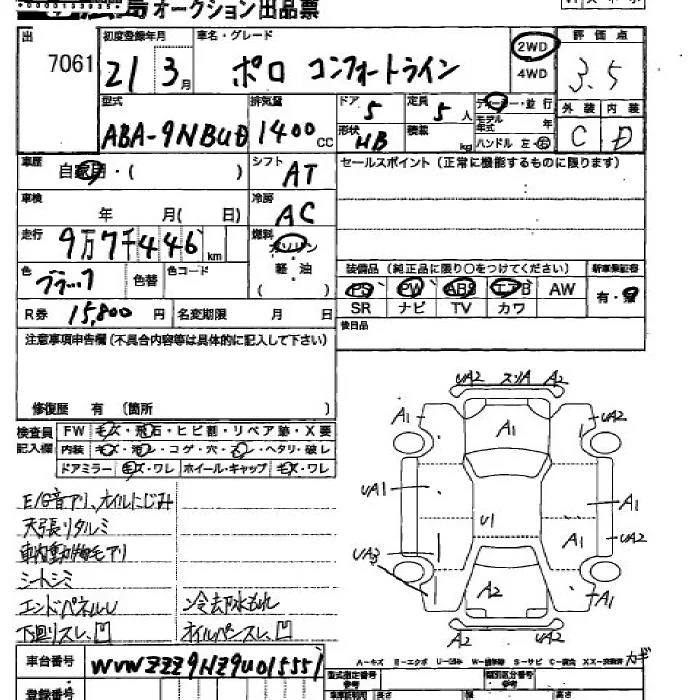 オークション出品票
出 7061
初度登録年月 21 3月
車名・グレード ポロ コンフォートライン
2WD
4WD
評価点 3.5
型式 ABA-9NBUD
排気量 1400cc
ドア 5
定員 5人
形状 HB
積載 kg
ディーラー・並行
モデル年式 年
ハンドル 左・右
外装 C
内装 D
車歴 自家用・( )
シフト AT
セールスポイント (正常に機能するものに限ります)
車検 年 月( 日)
冷房 AC
走行 9万7千446km
燃料 ガソリン
軽・油
( )
色 ブラック
色替
色コード
装備品 (純正品に限り○をつけてください)
新車保証書 有・無
PS PW ABS エアB AW
SR ナビ TV カワ
R券 15,800円
名変期限 月 日
後日品
注意事項申告欄(不具合内容等は具体的に記入して下さい)
修復歴 有 〔箇所 〕
検査員記入欄
FW キズ・飛石・ヒビ割・リペア跡・X要
内装 キズ・汚レ・コゲ・穴・・ヘタリ・破レ
ドアミラー キズ・ワレ ホイール・キャップ キズ・ワレ
E/G音アリ、オイルにじみ
天張りタルミ
車内動物毛アリ
シートシミ
エンドパネルU 冷去水もれ
下廻りスレ、凹 オイルパンスレ、凹
UA2 スリA A2
A1 A1 UA2
UA1 U1 A1
A1 UA2
UA3 A2 A1
A2 UA2
車台番号 WVWZZZ9NZ9U015551
登録番号
A-キズ E-エクボ U-凹み W-補修跡 S-サビ C-腐食 XX-交換済 カギ
型式指定番号 参考
類別区分番号 参考
長さ 幅 高さ